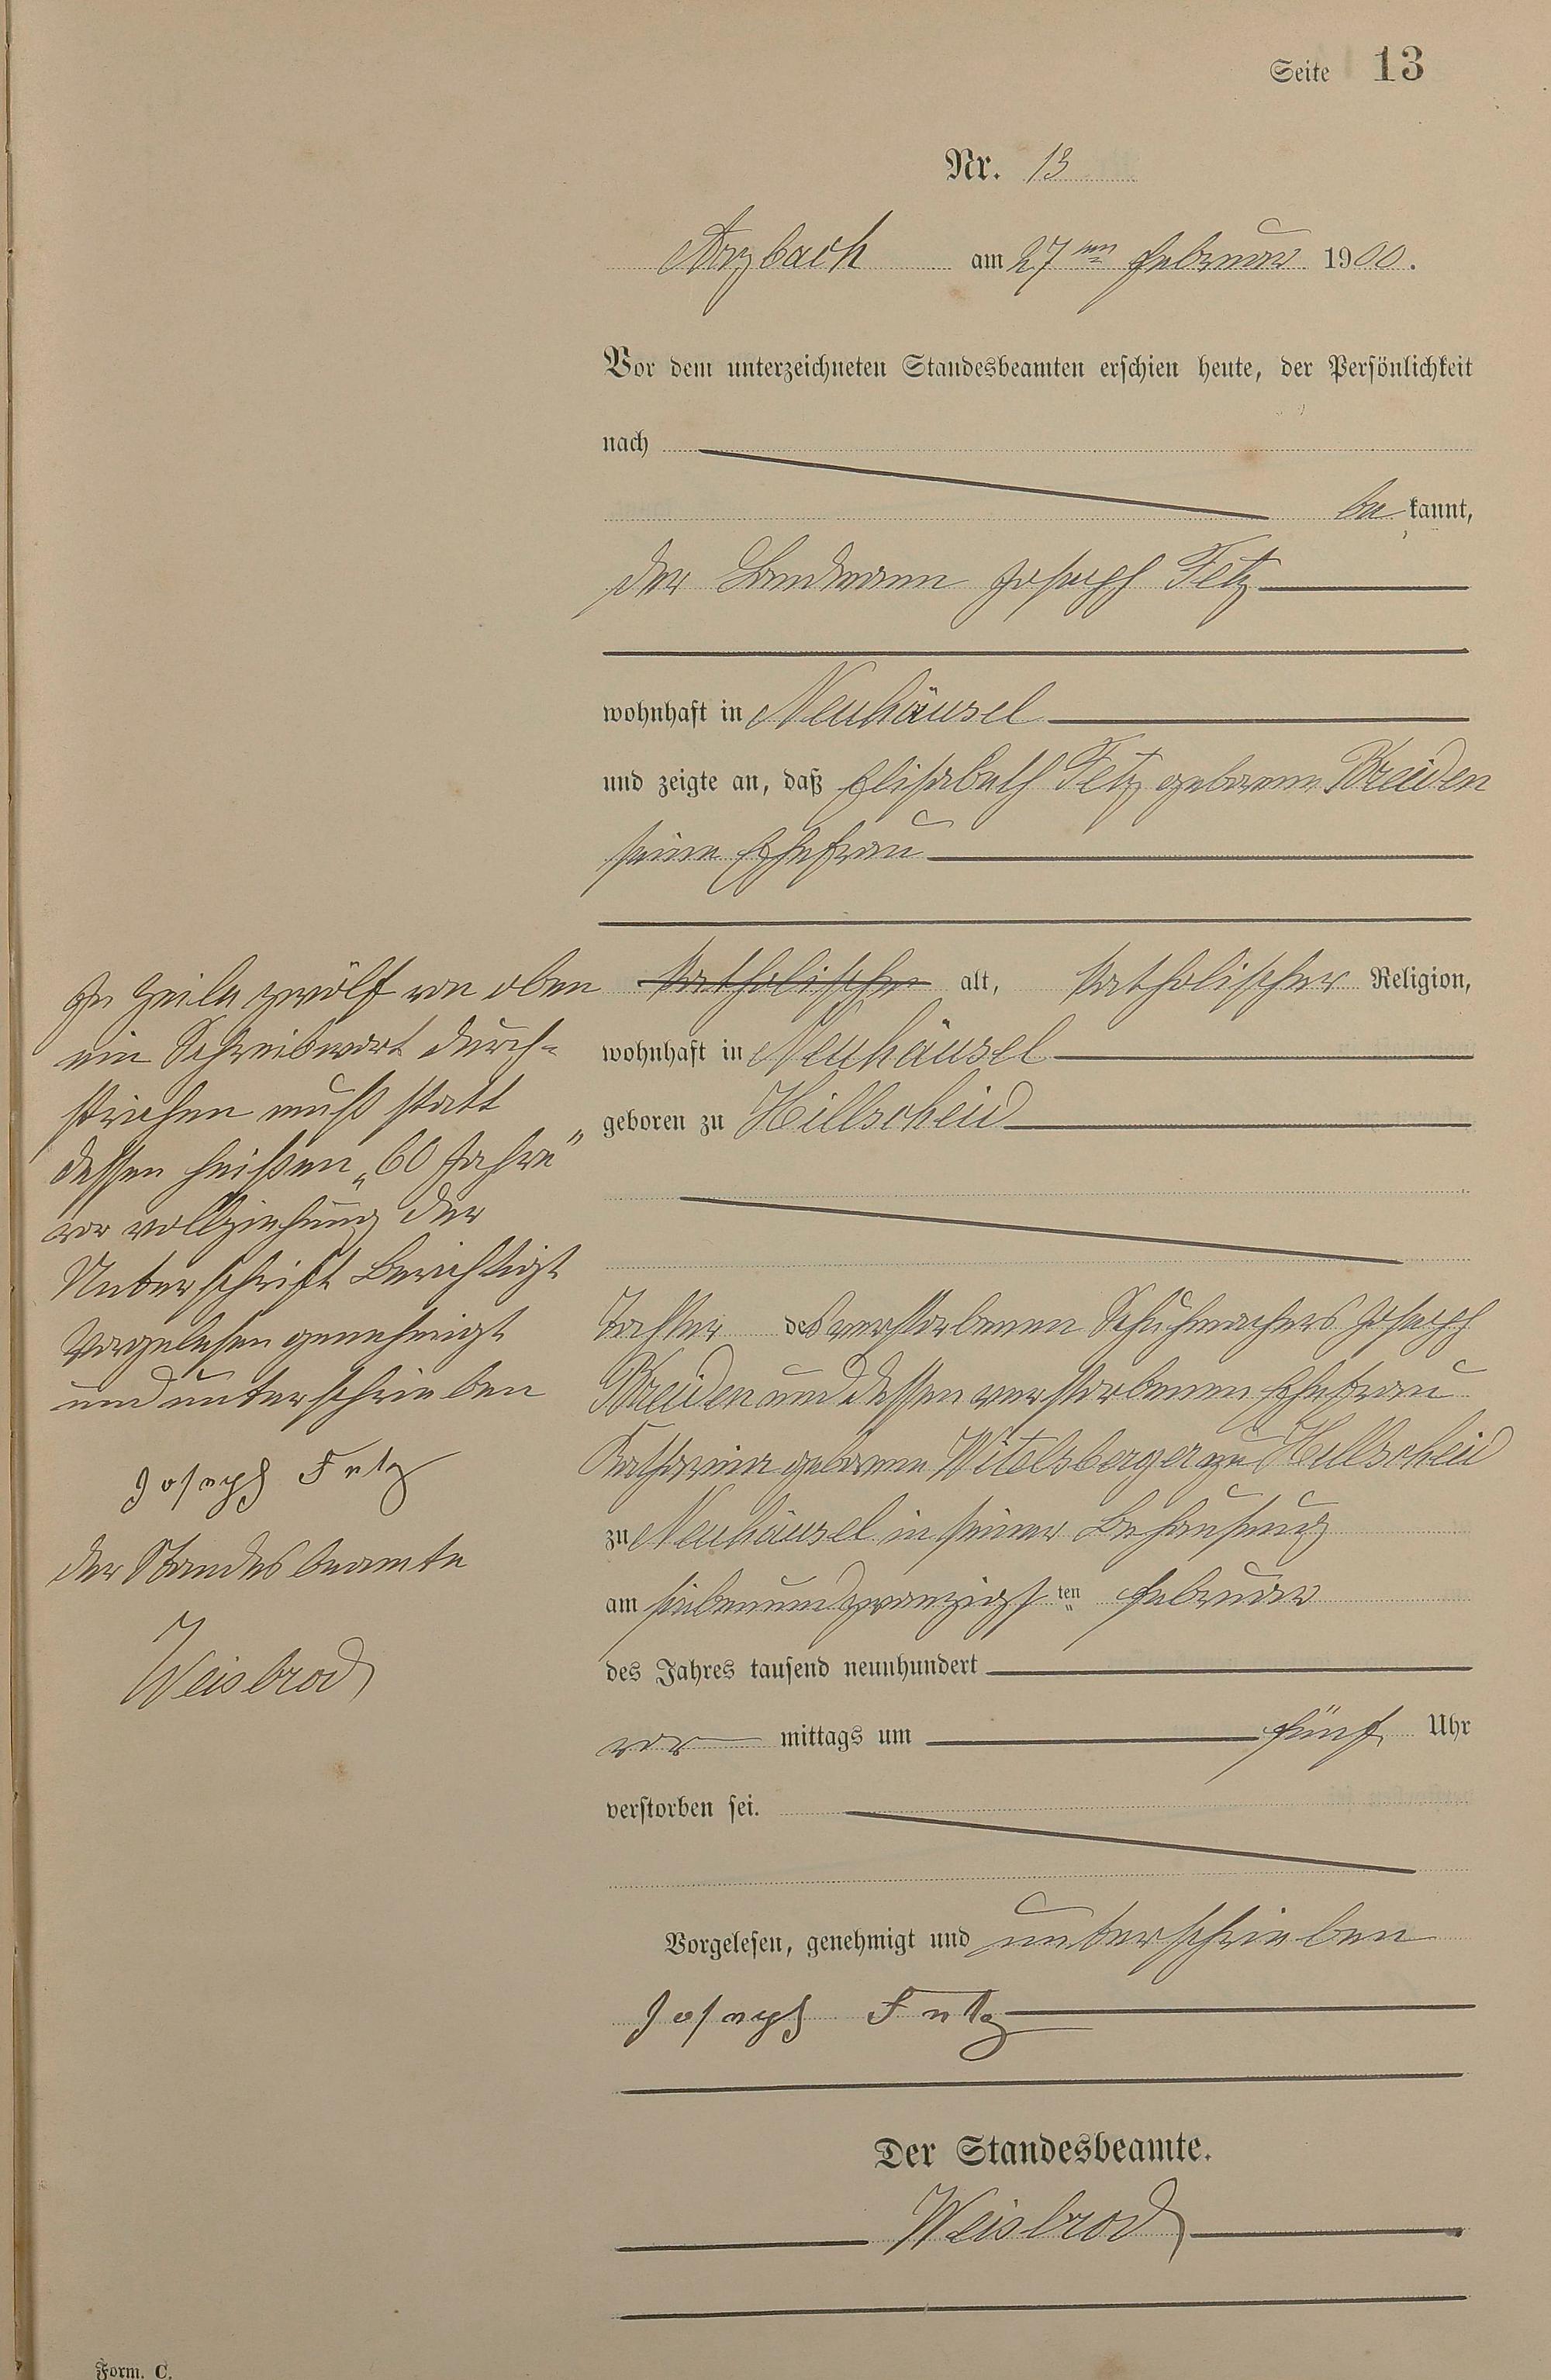 Seite 13
Nr. 13
Arzbach am 27ten Februar 1900.
Vor dem unterzeichneten Standesbeamten erschien heute, der Persönlichkeit
nach
be kannt,
der Landmann Joseph Fetz
wohnhaft in Neuhäusel
und zeigte an, daß Elisabeth Fetz geborene Breiden
seine Ehefrau
katholischer alt, katholischer Religion,
wohnhaft in Neuhäusel
geboren zu Hillscheid
Tochter des verstorbenen Schuhmachers Joseph
Breiden und dessen verstorbenen Ehefrau
Katharina geborene Witelsberger zu Hillscheid
zu Neuhäusel in seiner Behausung
am siebenundzwanzigsten Februar
des Jahres tausend neunhundert
vor mittags um fünf Uhr
verstorben sei.
Vorgelesen, genehmigt und unterschrieben
Joseph Fetz
Der Standesbeamte.
Weisbrod
In Zeile zwölf von oben
ein Schreibwort durch-
strichen muß statt
dessen heißen „60 Jahre"
vor vollziehung der
Unterschrift Berichtigt
Vorgelesen genehmigt
und unterschrieben
Joseph Fetz
der Standesbeamte
Weisbrod
Form. C.